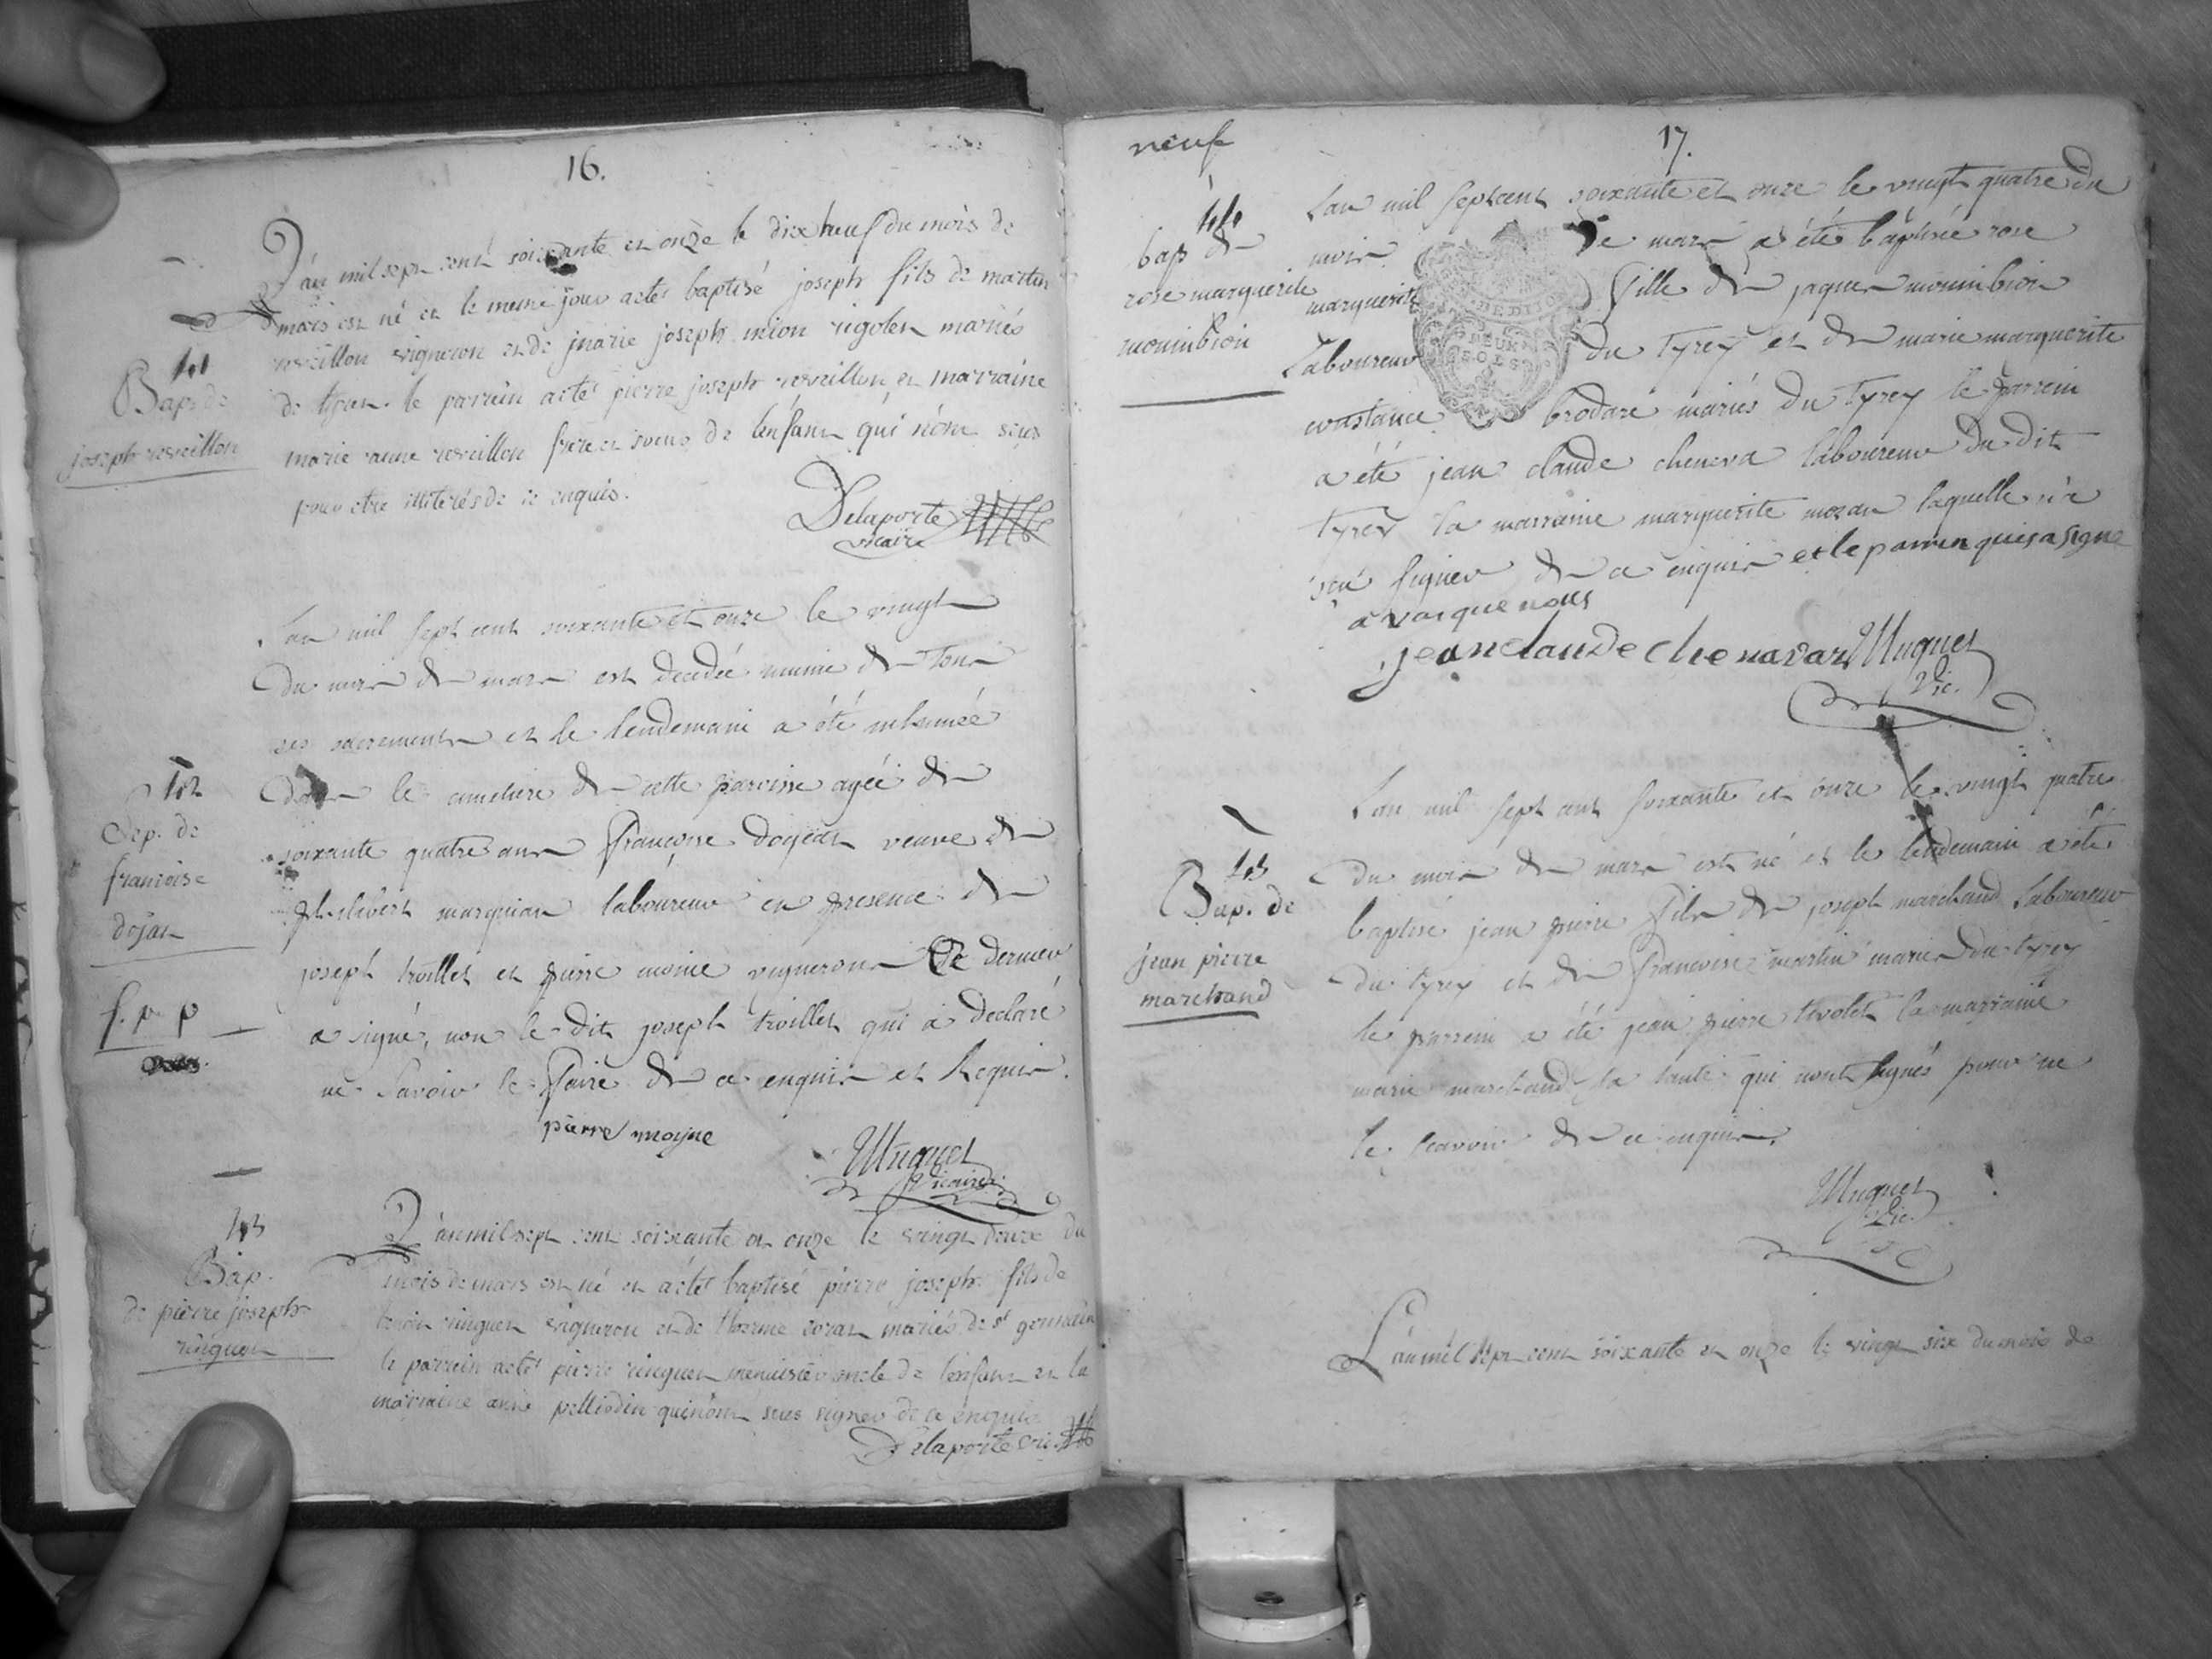 16.
L'an mil sept cent soixante et onze le dix neuf du mois de
mars est né et le meme jour a eté baptisé joseph fils de martin
reveillon vigneron et de marie joseph mion rigolet mariés
de le parrain a eté pierre joseph reveillon et marraine
marie anne reveillon frere et soeur de l'enfant qui n'ont sçus
pour etre illiterés de ce enquis.
Delaporte
vicaire
41
Bap. de
joseph reveillon
Lan mil sept cent soixante et onze le vingt
du mois de mars est decedée munie de tous
ses sacrements et le lendemain a été inhumée
dans le cimetiere de cette paroisse agée de
soixante quatre ans françoise dojean veuve de
marquian laboureur en presence de
joseph troillet et pierre moine vignerons Ce dernier
a signé, non le dit joseph troillet qui a declaré
ne savoir le faire de ce enquis et requis.
pierre moyne
Muguet
Vicaire
42
Sep. de
francoise
dojan
f. p. p
L'an mil sept cent soixante et onze le vingt douze du
mois de mars est né et a eté baptisé pierre joseph fils de
ringuet vigneron et de mariés de st germain
le parrain a eté pierre ringuet menuisier oncle de l'enfant et la
marraine anne qui n'ont sçus signer de ce enquis
Delaporte vic.
43
Bap.
de pierre joseph
ringuet
neuf
17.
Lan mil sept cent soixante et onze le vingt quatre du
mois de mars a été baptisée rose
marguerite fille de jaques moninbion
Laboureur du tyrey et de marie marguerite
constance brodard mariés du tyrey le parrein
a été jean claude cheneva laboureur du dit
tyrey la marraine marguerite mozan laquelle n'a
sçu signer de ce enquis et le parrin qui s a signe
avasque nous
jean clau de chenavaz Muguet
Vic.
44
bap de
rose marguerite
moninbion
Lan mil sept cent soixante et onze le vingt quatre
du mois de mars est né et le lendemain a été
baptisé jean pierre fils de joseph marchand Laboureur
du tyrey et de francoise martin mariés du tyrey
le parrein a été jean pierre tivolet la marraine
marie marchand sa tante qui n'ont signés pour ne
le scavoir de ce enquis.
Muguet
Vic.
45
Bap. de
jean pierre
marchand
L'an mil sept cent soixante et onze le vingt six du mois de